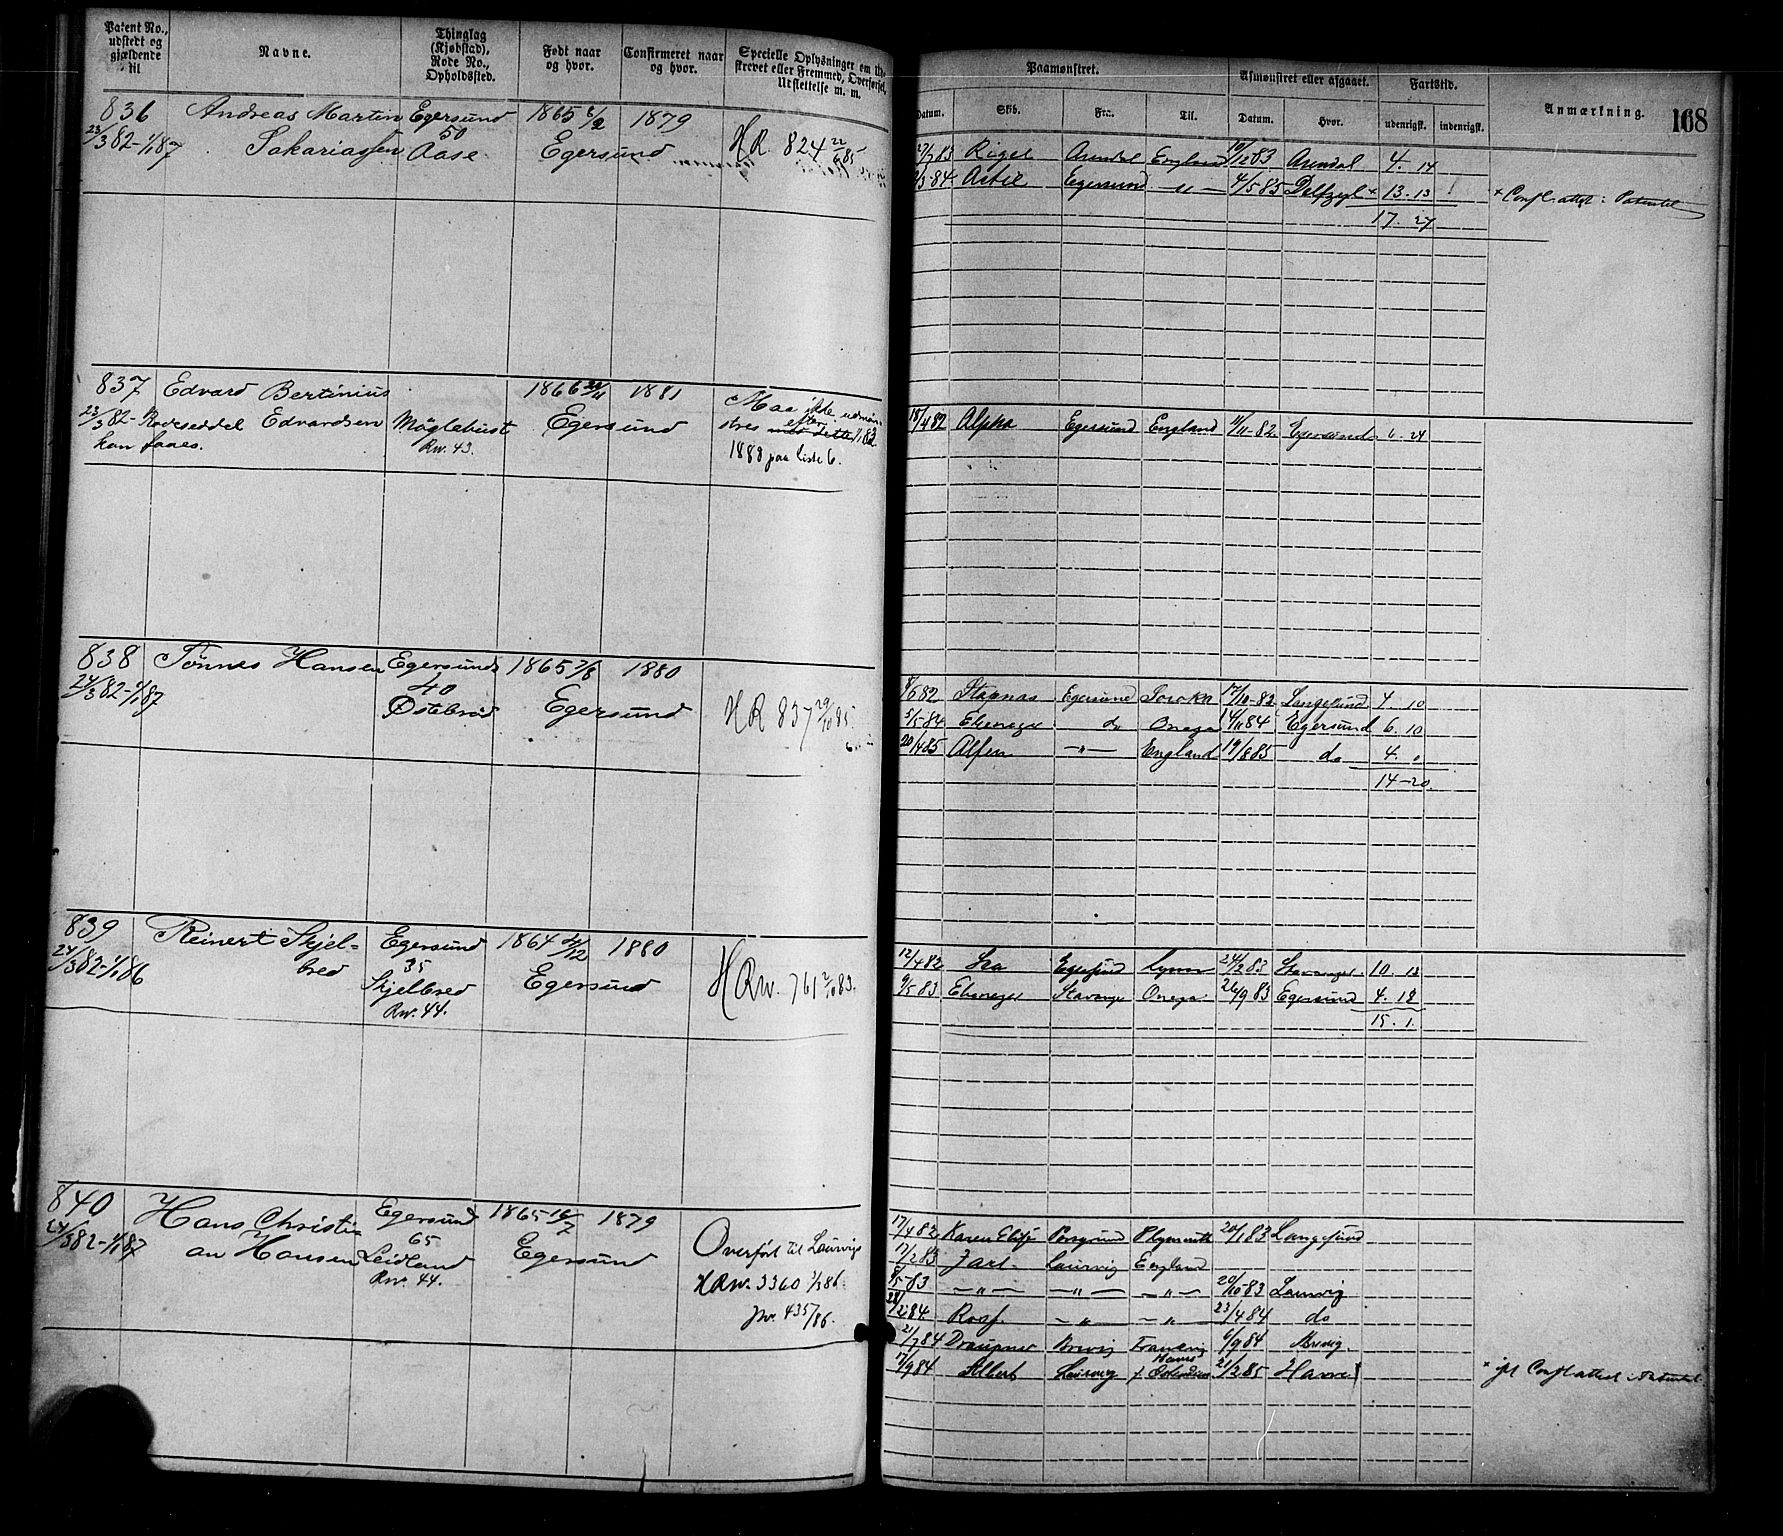 Patent No., udstedt og gjældende til
Navne.
Thinglag (Kjøbstad), Rode No., Opholdssted.
Født naar og hvor.
Confirmeret naar og hvor.
Specielle Oplysninger om Udskrevet eller Fremmed, Overførsel, Udslettelse m. m.
Paamønstret.
Afmønstret eller afgaaet.
Fartstid.
Anmærkning.
168
Datum.
Skib.
Fra.
Til.
Datum.
Hvor.
udenrigsk.
indenrigsk.
836 Andreas Martin Egersund 1865 6/2 1879
23/3 82-1/1 87 Sakariassen 50 Aase Egersund
HR. 824 22/6 85
27/7 83 Rigel Arendal England 10/12 83 Arendal 4. 14
3-84 Astil Egersund — " — 4/5 85 Delfzyl × 13. 13
× Consl. attst: Patentet
17. 27
837 Edvard Bertinius 1866 29/11 1881
23/3 82- Rodeseddel Edvardsen Møglebust Egersund
kan faaes. Rw. 43.
Maa ikke udmøn-
stres efter
1888 paa liste 6.
18/4 82 Alpha Egersund England 11/11-82 Egersund 6. 24
838 Tønnes Hansen Egersund 1865 7/8 1880
24/3 82-1/1 87 40 Østebrød Egersund
HR 837 29/10 85
6 82 Stapnas Egersund Soroka 17/10-82 Langesund 4. 10
5/5-84 Ebenezer do Onega 14/11 84 Egersund 6. 10
20/4 85 Alfen — " — England 19/8 85 do 4. 0
14-20.
839 Reinert Skjel- Egersund 1864 21/12 1880
24/3 82-1/1 86 bred 35 Skjelbred Egersund
Rw. 44.
HRw. 761 2/10 83.
12/4 82 Ira Egersund Lynn 24/2 83 Stavanger 10. 13
9/5 83 Ebenezer Stavanger Onega 26/9 83 Egersund 4. 18
15. 1.
840 Hans Christi- Egersund 1865 16/7 1879
24/3 82-1/1 87 an Hansen 65 Leidland Egersund
Rw. 44.
Overført til Laurvigs
HRw. 3360 1/2 86.
Jnr. 435/86.
17/4 82 Karen Elise Porsgrund Plymouth 20/1 83 Langesund
17/2 83 Jarl Laurvig England
8/5-83 — " — — " — — " — 20/10-83 Laurvig
28/2 84 — " — — " — 23/4 84 do
21/7 84 Draupner Brevig Frankrig 6/9 84 Brevig.
17/9 84 Albert Laurvig Havre 21/2 85 Havre
× ifl Consl attest Patentet